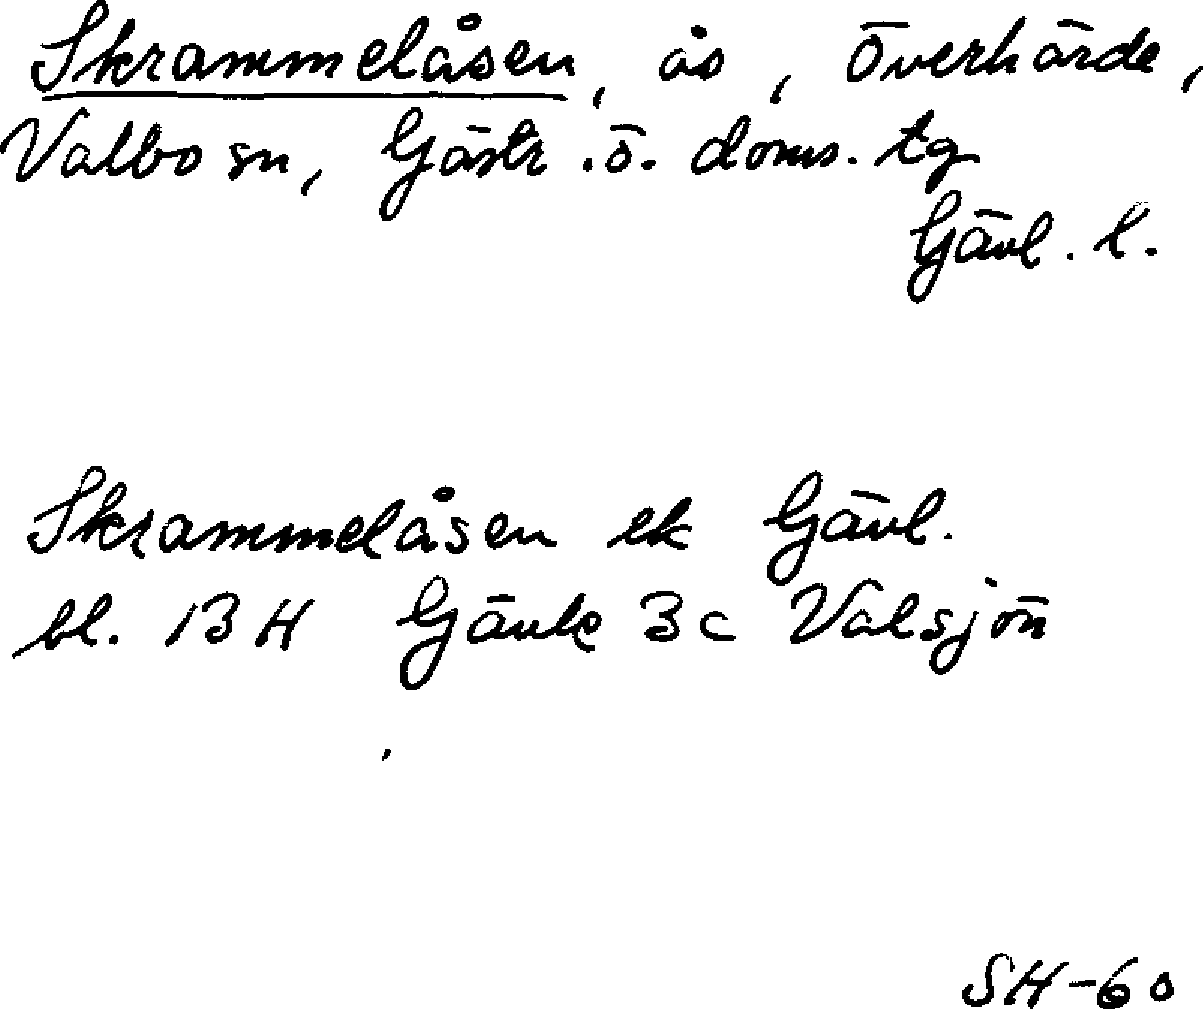 Skrammelåsen, ås, Överhärde,
Valbo sn, Gästr. ö. doms. tg
Gävl. l.
Skrammelåsen ek Gävl.
bl. 13 H Gävle 3c Valsjön
SH-60